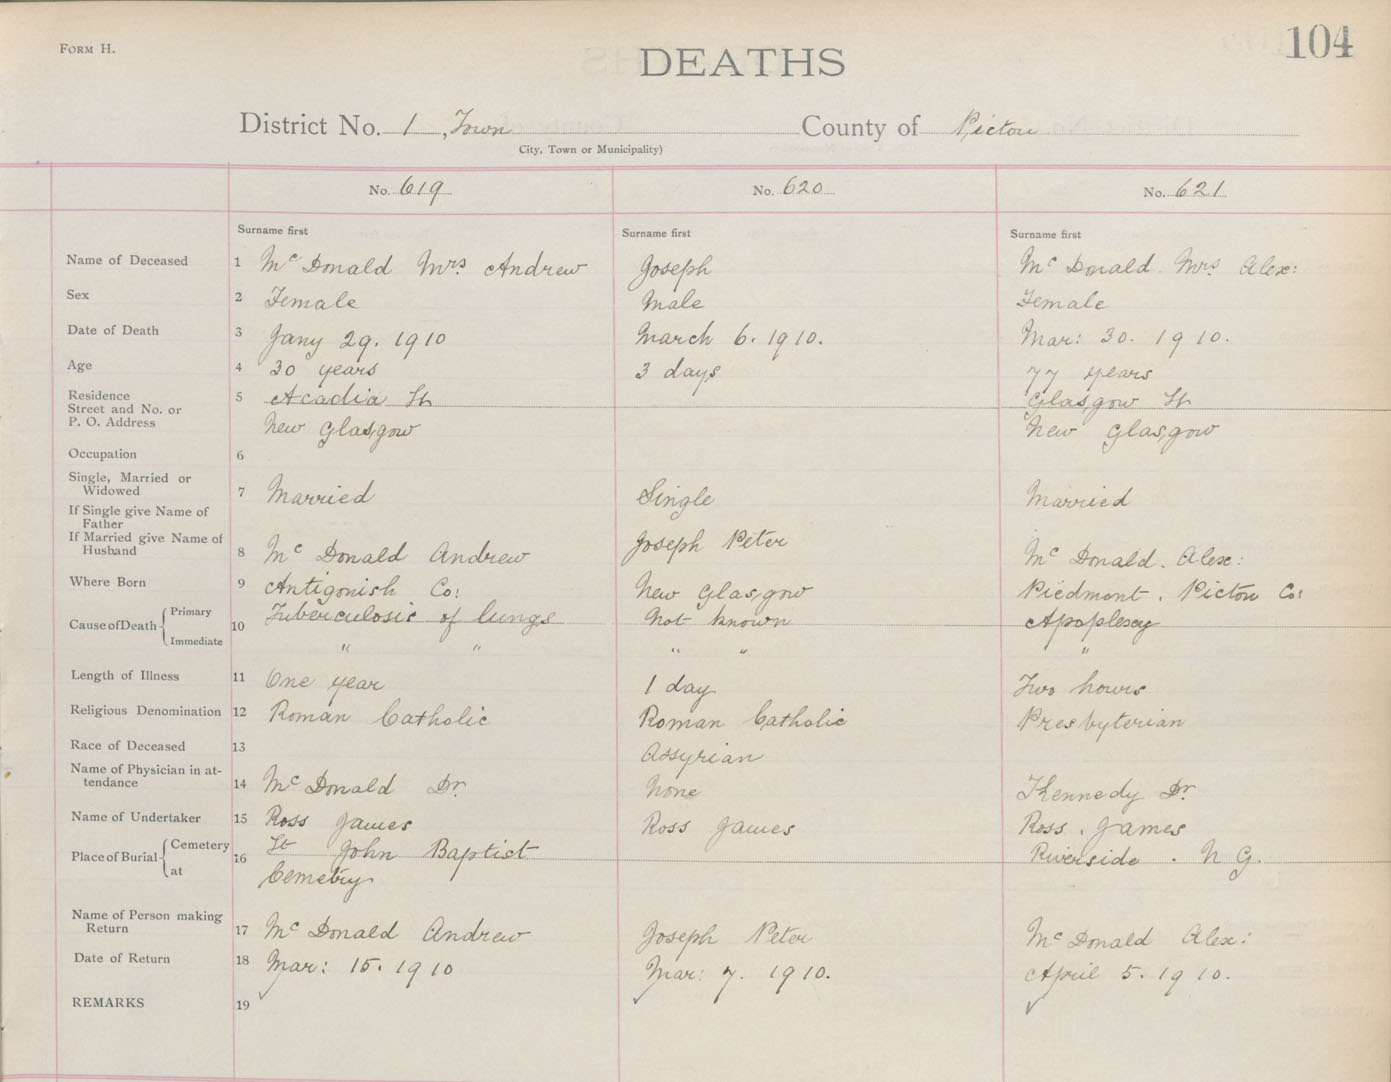 FORM H.
DEATHS
104
District No. 1, Town County of Pictou
City, Town or Municipality)
No. 619 No. 620 No. 621
Surname first Surname first Surname first
Name of Deceased 1 Mc Donald Mrs Andrew Joseph Mc Donald. Mrs Alex:
Sex 2 Female Male Female
Date of Death 3 Jany 29. 1910 March 6. 1910. Mar: 30. 1910.
Age 4 30 years 3 days 77 years
Residence 5 Acadia St Glasgow St
Street and No. or
P. O. Address New Glasgow New Glasgow
Occupation 6
Single, Married or
Widowed 7 Married Single Married
If Single give Name of
Father
If Married give Name of Joseph Peter
Husband 8 Mc Donald Andrew Mc Donald. Alex:
Where Born 9 Antigonish Co: New Glasgow Piedmont, Pictou Co:
Cause of Death { Primary 10 Tuberculosis of lungs Not known Apoplexy
Immediate " " " " "
Length of Illness 11 One year 1 day Two hours
Religious Denomination 12 Roman Catholic Roman Catholic Presbyterian
Race of Deceased 13 Assyrian
Name of Physician in at-
tendance 14 Mc Donald Dr. None Kennedy Dr.
Name of Undertaker 15 Ross James Ross James Ross, James
Place of Burial { Cemetery 16 St John Baptist Riverside. N G.
at Cemetry
Name of Person making
Return 17 Mc Donald Andrew Joseph Peter Mc Donald Alex:
Date of Return 18 Mar: 15. 1910 Mar: 7. 1910. April 5. 1910.
REMARKS 19